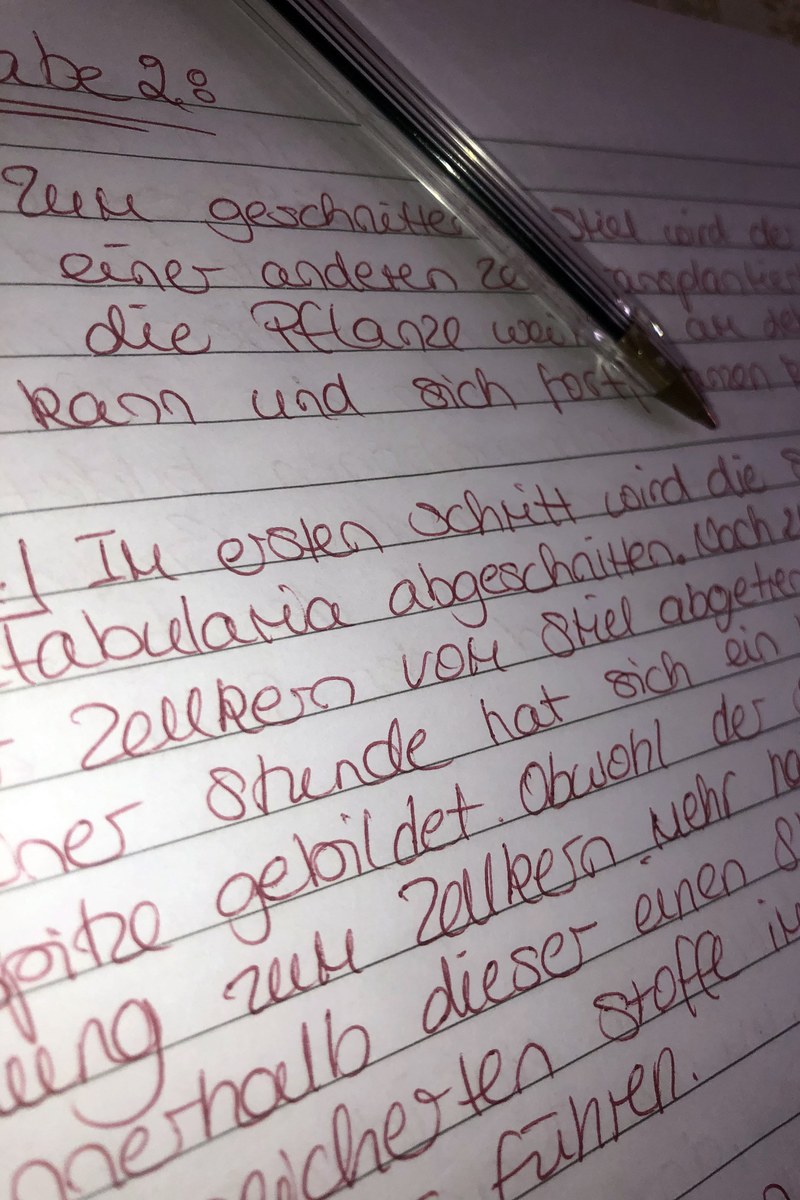 abe 2.8
Zum geschnitte Stiel wird de
einer anderen Ze ansplantier
die Pflanze wei an de
kann und sich fort
Im ersten Schritt wird die S
tabularia abgeschnitten. Nach 2
Zellkern vom Stiel abgetre
ner Stunde hat sich ein
pitze gebildet. Obwohl der
ung zum Zellkern mehr ha
nnerhalb dieser einen S
eicherten Stoffe im
führen.